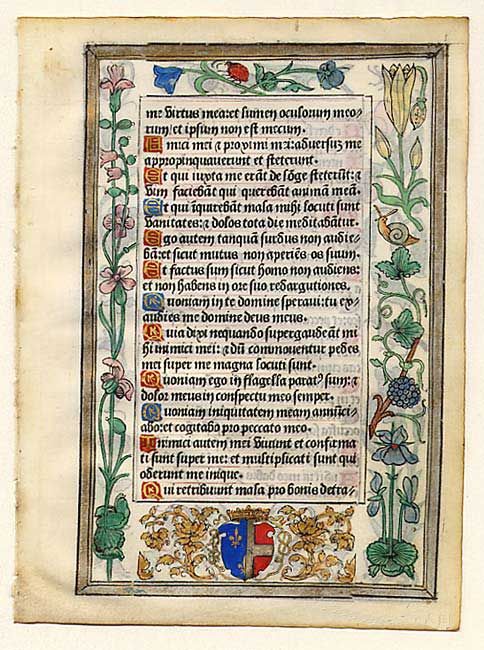 me virtus mea: et lumen oculorum meo-
rum/ et ipsum non est mecum.
Amici mei & proximi mei: adversuz me
appropinquaverunt et steterunt.
Et qui iuxta me erāt de lōge steterūt: &
vim faciebāt qui querebāt animā meā.
Et qui īquirebāt mala mihi locuti sunt
vanitates: & dolos tota die meditabātur.
Ego autem tanquā surdus non audie-
bā: et sicut mutus non aperiēs os suum.
Et factus sum sicut homo non audiens:
et non habens in ore suo redargutiones.
Quoniam in te domine speravi: tu ex-
audies me domine deus meus.
Quia dixi nequando supergaudeāt mi
hi inimici mei: & dū commoventur pedes
mei super me magna locuti sunt.
Quoniam ego in flagella paratꝰ sum: &
dolor meus in conspectu meo semper.
Quoniam iniquitatem meam annūci-
abo: et cogitabo pro peccato meo.
Inimici autem mei vivunt et confirma
ti sunt super me: et multiplicati sunt qui
oderunt me inique.
Qui retribuunt mala pro bonis detra-